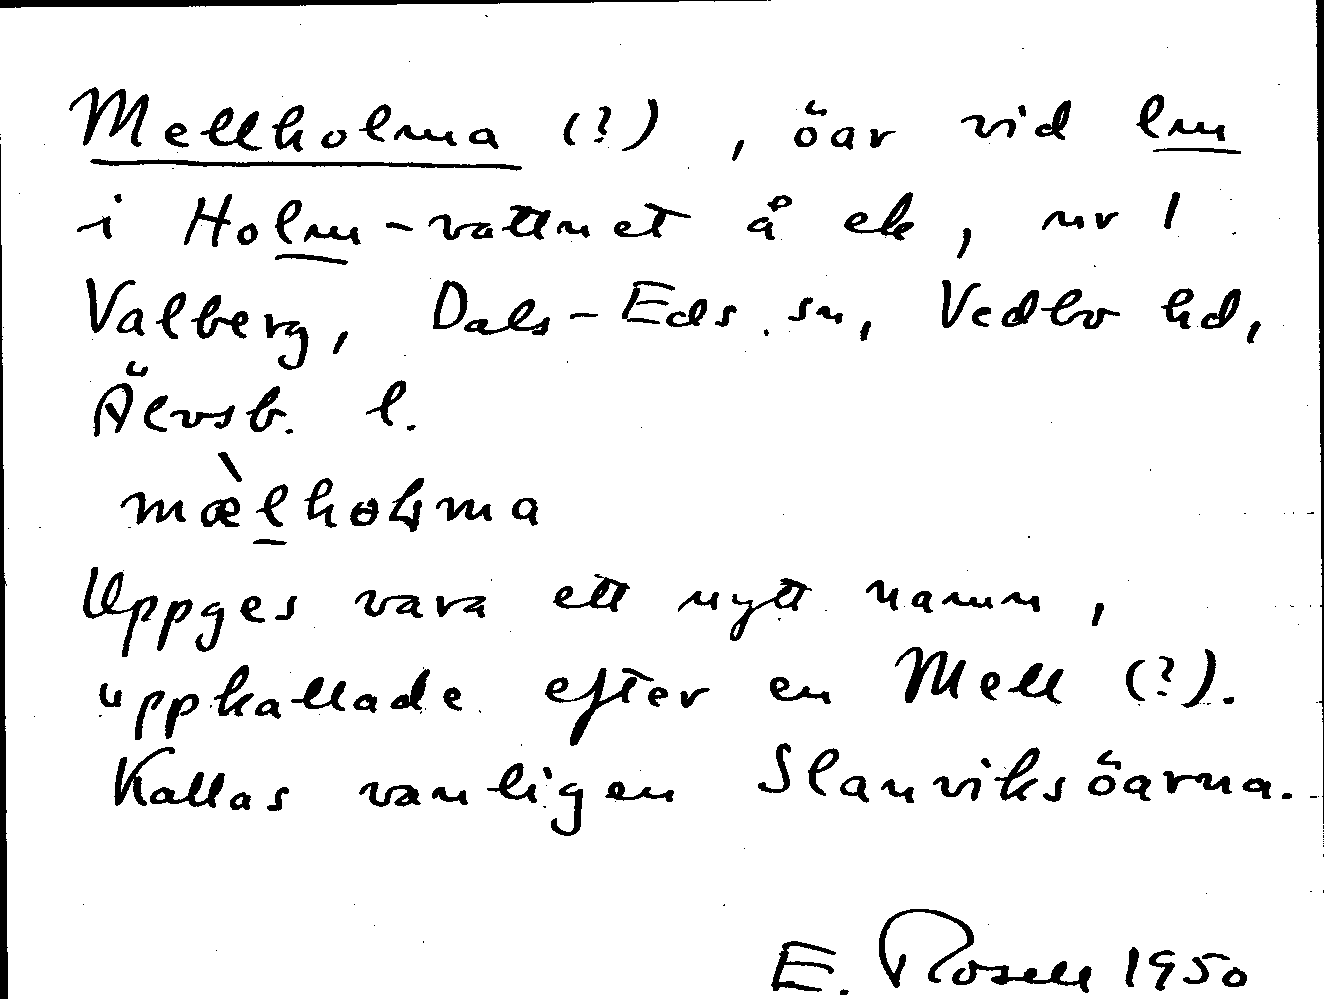 Mellholma (?), öar vid lm
i Holm-vattnet å ek, nr 1
Valberg, Dals-Eds sn, Vedbo hd,
Älvsb. l.
mæ̀lhoɫma
Uppges vara ett nytt namn,
uppkallade efter en Mell (?).
Kallas vanligen Slanviksöarna.
E. Rosell 1950